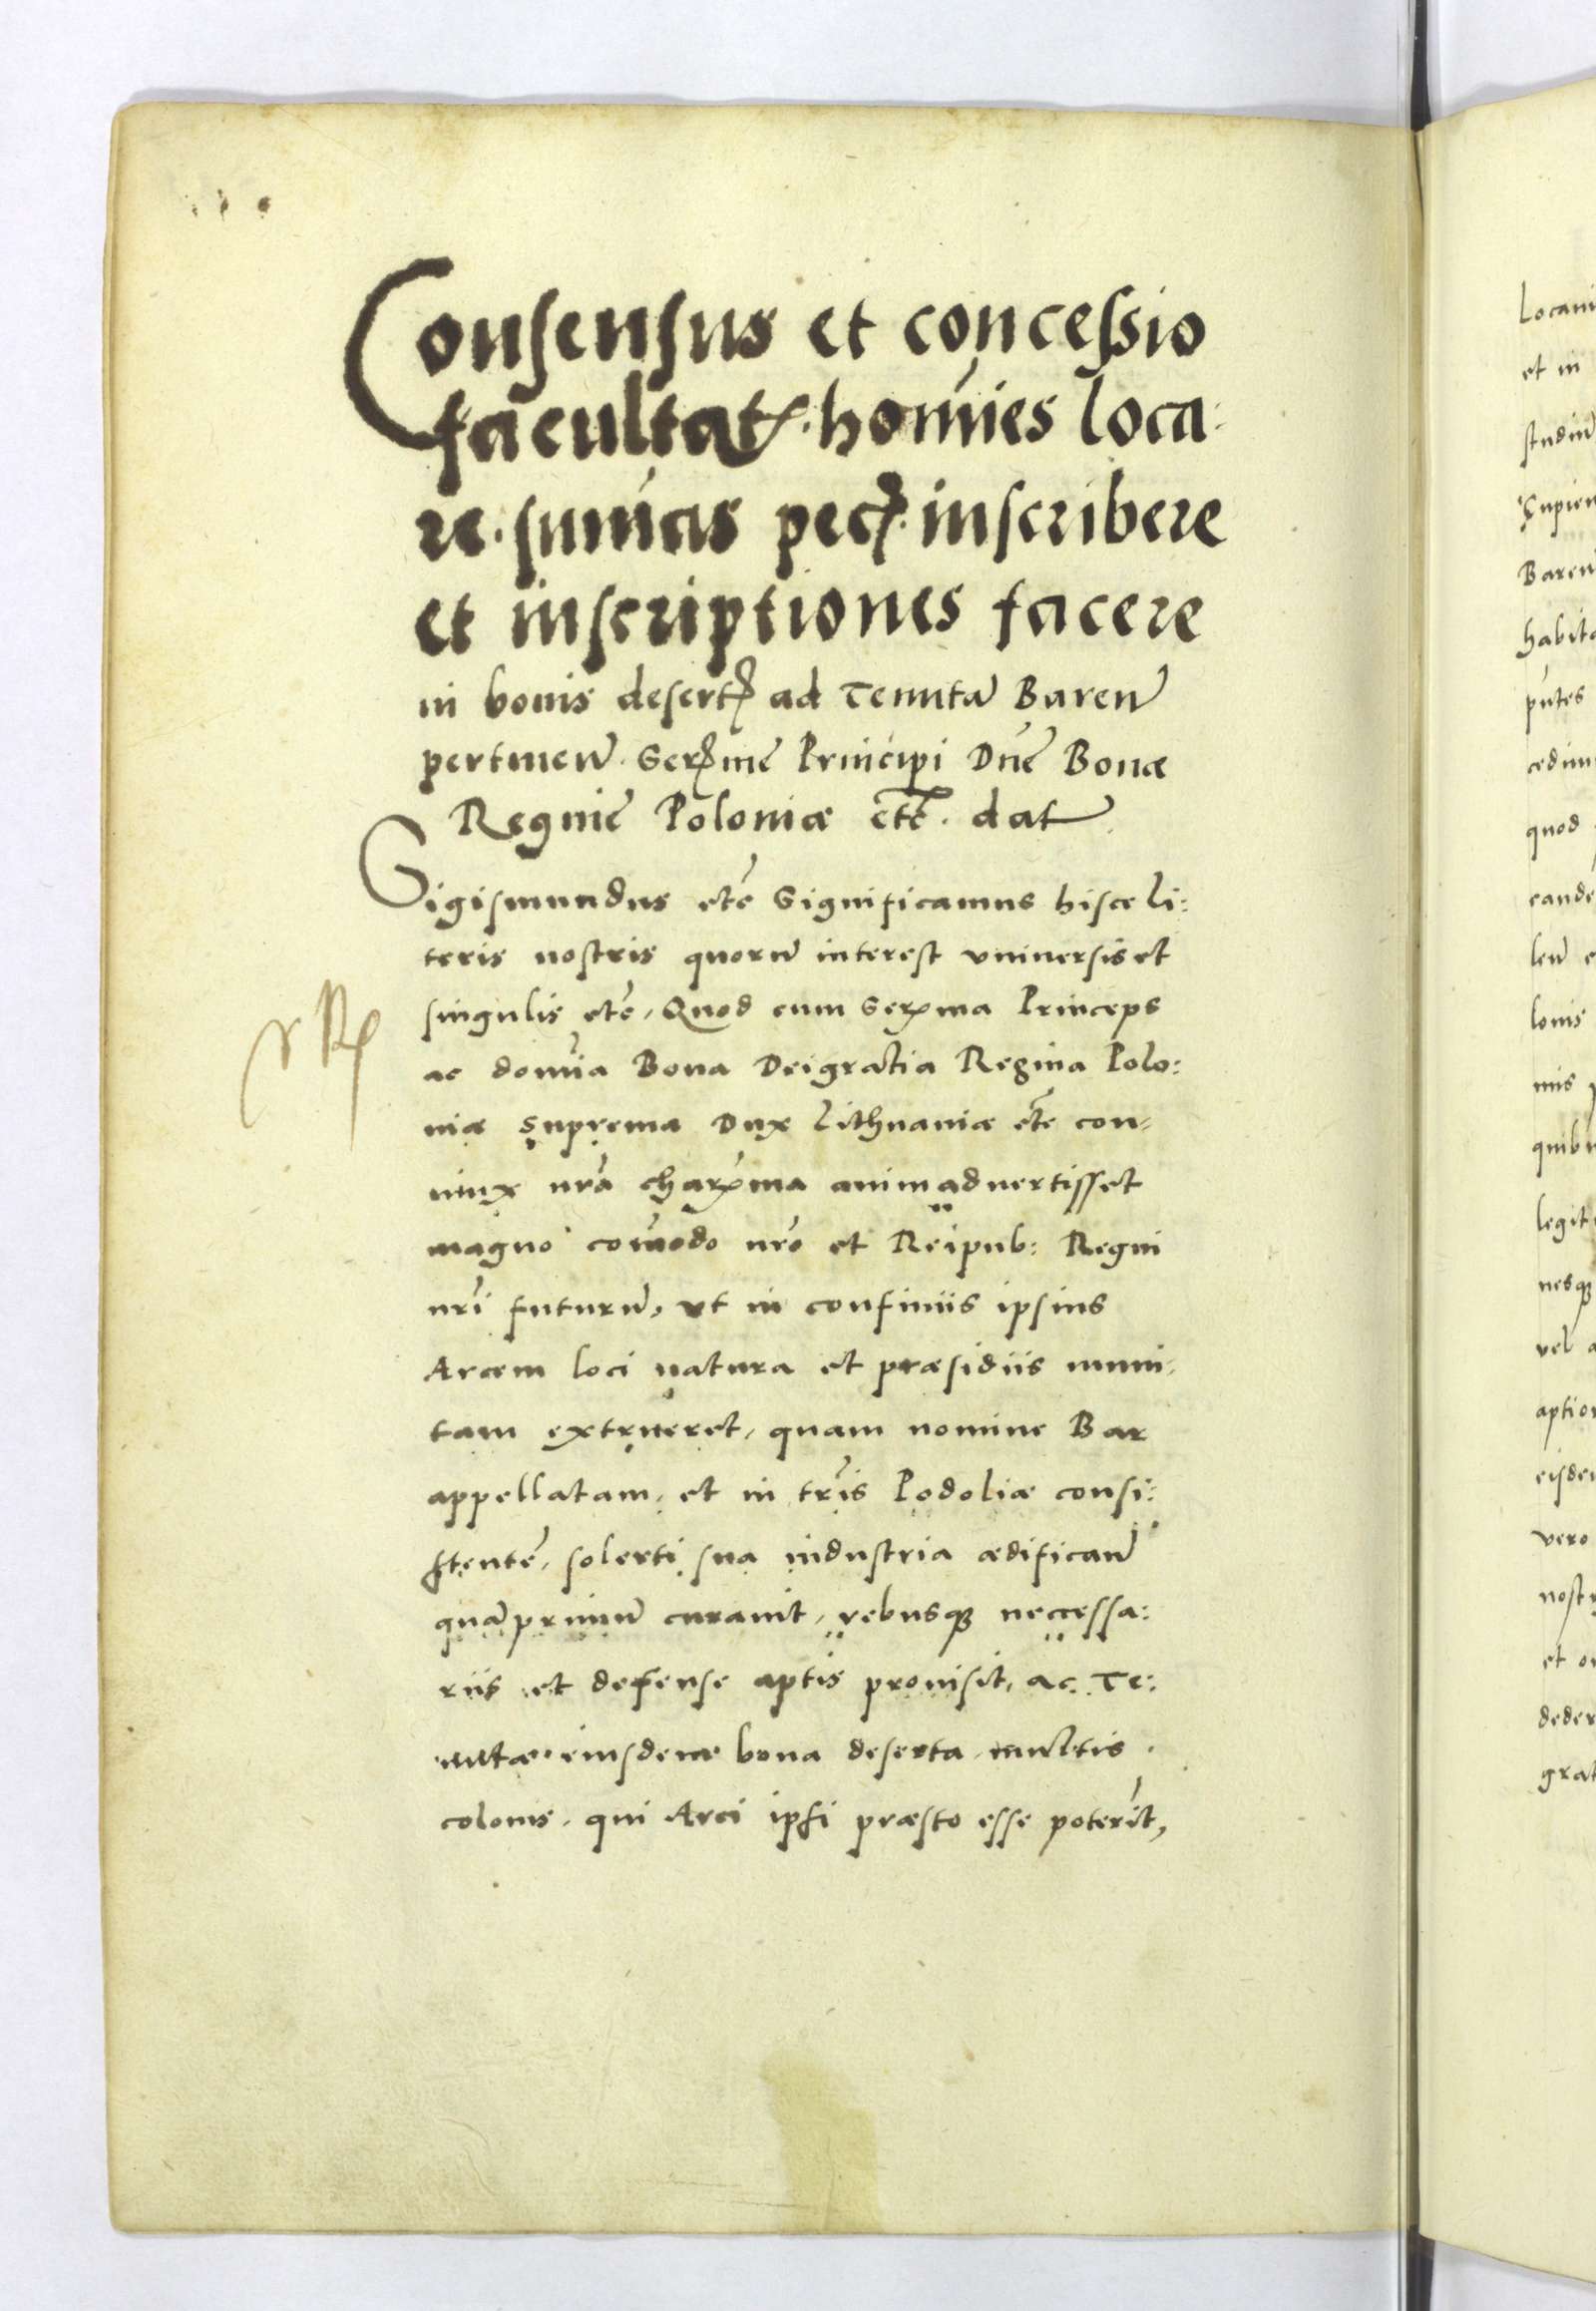 Consensus et concessio
facultatꝭ. homı̃es loca:
re. sum̃as pecꝭ. inscribere
et inscriptiones facere
in bonis desertꝭ ad Tenutã Bareñ
pertineñ. Serꝭme͂ Principi Dne͂ Bonæ
Regnie͂ Poloniæ etc͂. dat
Sigismundus etc͂ Significamus hisce li:
teris nostris quorũ interest vniuersis et
singulis etc͂, Quod cum Serꝭma Princeps
ac domı̃a Bona Dei gratia Regina Polo:
niæ Suprema Dux Lithuaniæ etc͂ con,
iunx nrã charꝭma animaduertisset
magno com̃odo nrõ et Reipub: Regni
nrĩ futurũ, vt in confiniis ipsius
Arcem loci natura et præsidiis muni,
tam extrueret, quam nomine Bar
appellatam, et in trĩs Podoliæ consi:
stente͂, solerti sua industria ædificañ
quã primũ curauit, rebusqꝫ necessa:
riis et defense aptis prouisit, ac Te:
nutæ eiusdem bona deserta multis
colonis, qui Arci ipsi præsto esse poterı̃t,
Locan
et in
studiũ
Supien
Baren
habita
pñtes
cedim
quod
eande
leñ e
lonis
mis
quib
legit
nesqꝫ
vel a
aption
eisde
vero
nost
et o
deder
grat